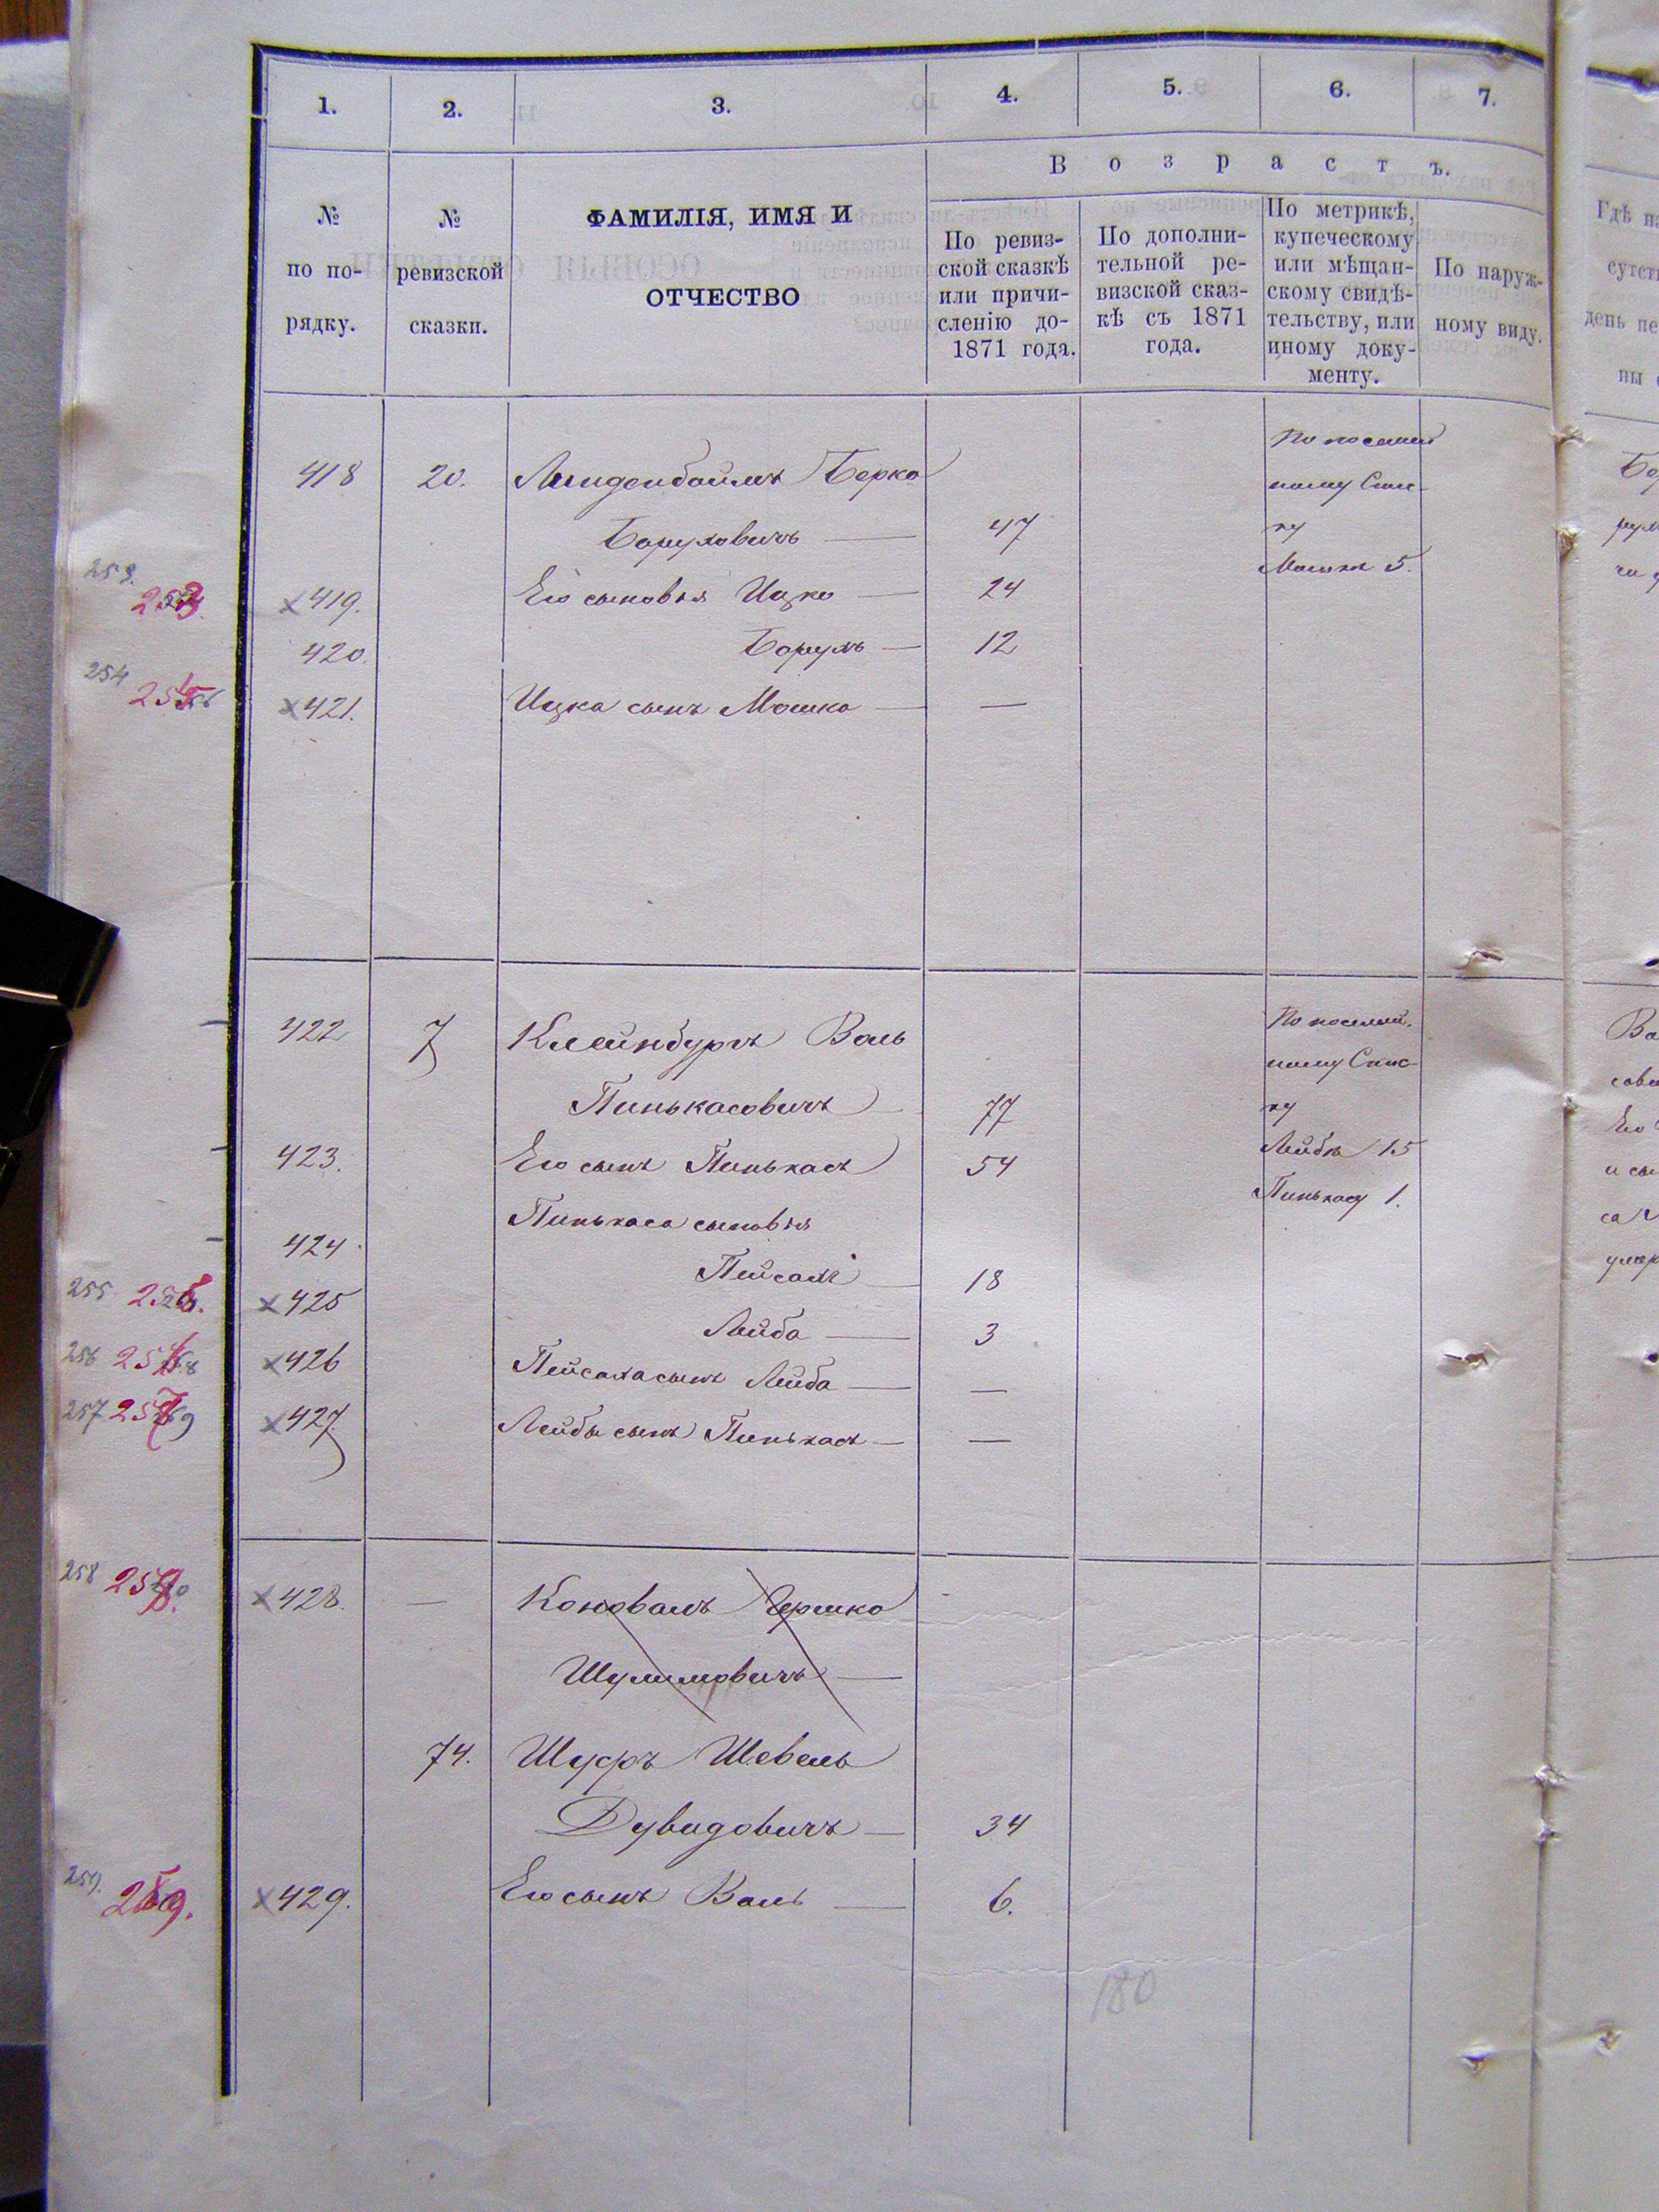 1. 2. 3. 4. 5. 6. 7.
Возрастъ.
№ по по-рядку.
№ ревизской сказки.
ФАМИЛІЯ, ИМЯ И
ОТЧЕСТВО
По ревиз-
ской сказкѣ
или причи-
сленію до
1871 года.
По дополни-
тельной ре-
визской сказ-
кѣ съ 1871
года.
По метрикѣ,
купеческому
или мѣщан-
скому свидѣ-
тельству, или
иному доку-
менту.
По наруж-
ному виду.
По посемей
418 20. Линденбоймъ Берко ному Спис-
Боруховичъ — 47 ку
Мошки 5.
253. ×419. Его сыновья Ицко — 24
420. Борухъ — 12
254 ×421. Ицка сынъ Мошко — —
По посемей-
422 7 КлейнбургъВоль ному Спис-
Пинькасовичъ 77 ку
423. Его сынъ Пинькасъ 54 Лейбѣ 15
Пинькасу 1.
424 Пинькаса сыновья
Пейсахъ — 18
255 ×425 Лейба — 3
256 ×426 Пейсаха сынъ Лейба — —
257 ×427. Лейбы сынъ Пинькасъ — —
258 ×428. — Коновалъ Гершко
Шулимовичъ —
74. Шуфъ Шевель
Дувидовичъ — 34
259. ×429. Его сынъ Воль — 6.
180